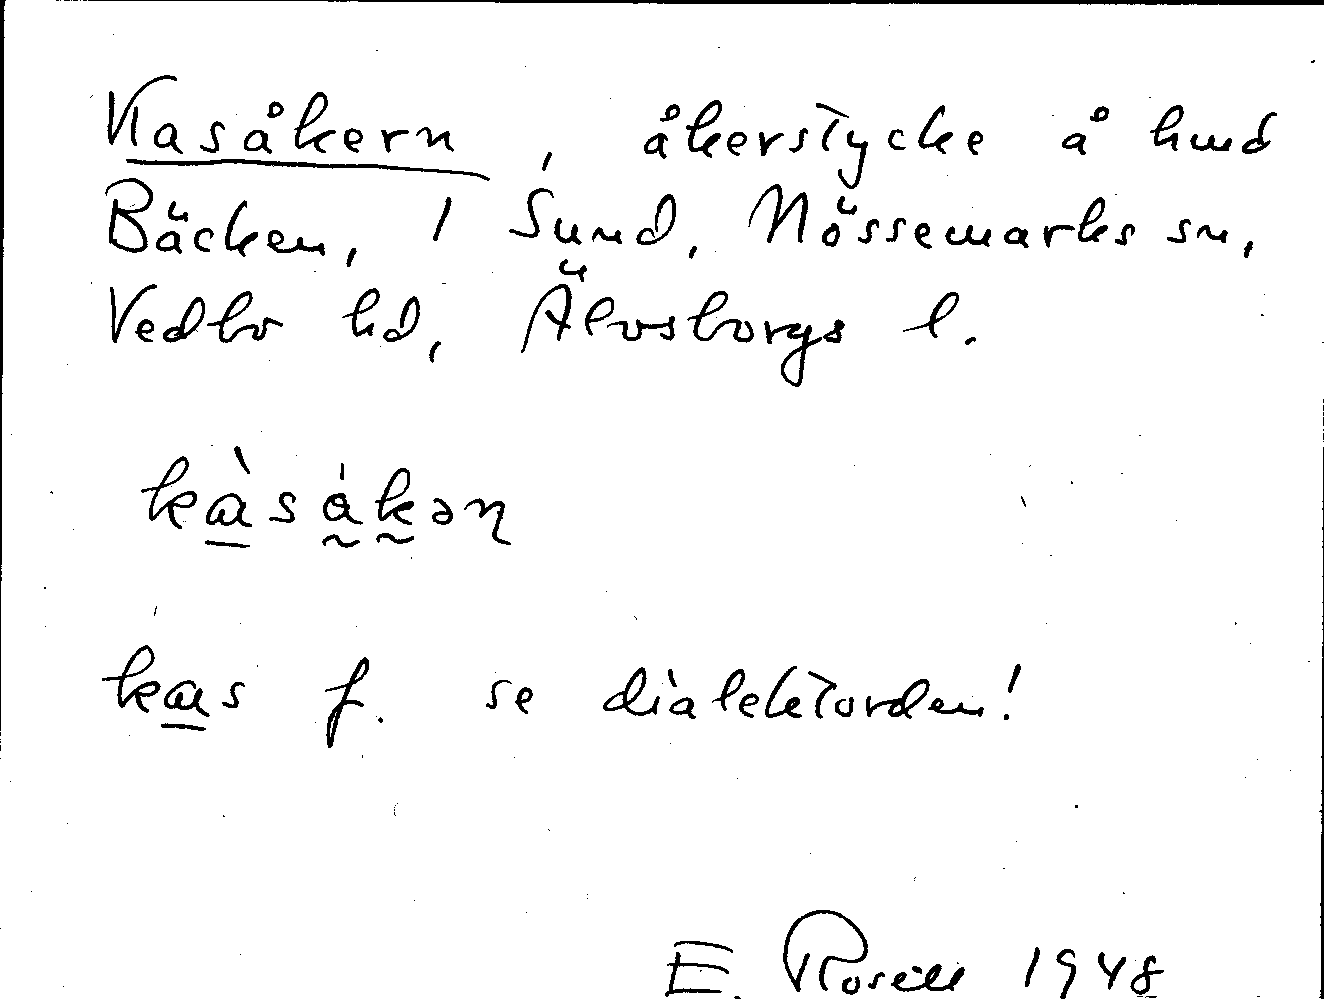 Kasåkern, åkerstycke å hmd
Bäcken, 1 Sund, Nössemarks sn,
Vedbo hd, Älvsborgs l.
kàsåkən
kas f. se dialektorden!
E. Rosell 1948